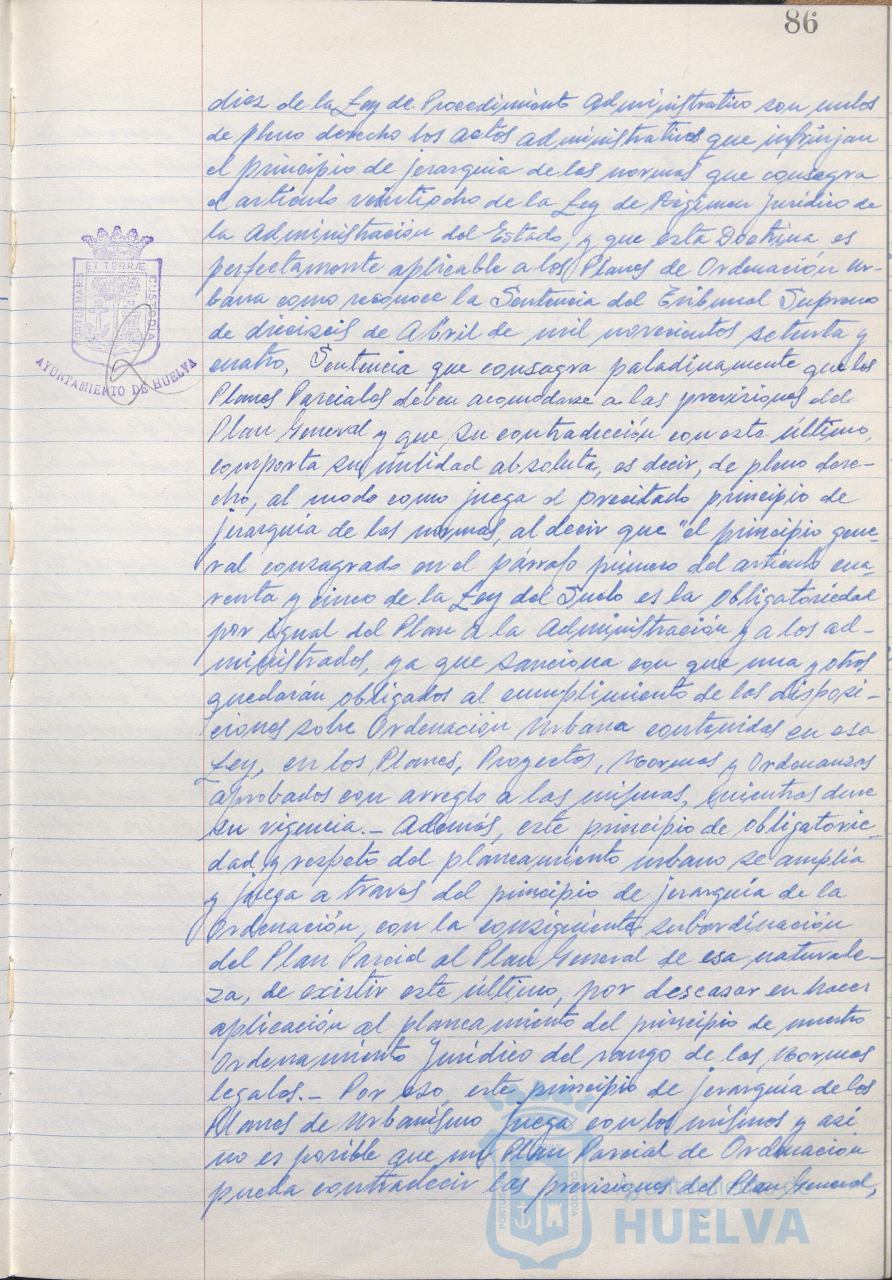 86
diez de la Ley de Procedimiento Administrativo son nulos
de pleno derecho los actos administrativos que infrinjan
el principio de jerarquía de las normas que consagra
el artículo veintiocho de la Ley de Régimen Jurídico de
la Administración del Estado, y que esta Doctrina es
perfectamente aplicable a los Planes de Ordenación Ur-
bana como reconoce la Sentencia del Tribunal Supremo
de dieciseis de Abril de mil novecientos setenta y
cuatro, Sentencia que consagra paladinamente que los
Planes Parciales deben acomodarse a las previsiones del
Plan General y que su contradicción con este último,
comporta su nulidad absoluta, es decir, de pleno dere-
cho, al modo como juega el precitado principio de
jerarquía de las normas, al decir que "el principio gene-
ral consagrado en el párrafo primero del artículo cua-
renta y cinco de la Ley del Suelo es la obligatoriedad
por igual del Plan a la Administración y a los ad-
ministrados, ya que sanciona con que una y otros
quedarán obligados al cumplimiento de las disposi-
ciones sobre Ordenación Urbana contenidas en esa
Ley, en los Planes, Proyectos, Normas y Ordenanzas
aprobados con arreglo a las mismas, mientras dure
su vigencia.- Además, este principio de obligatorie-
dad y respeto del planeamiento urbano se amplía
y juega a traves del principio de jerarquía de la
Ordenación, con la consiguiente subordinación
del Plan Parcial al Plan General de esa naturale-
za, de existir este último, por descasar en hacer
aplicación al planeamiento del principio de nuestro
Ordenamiento Jurídico del rango de las Normas
legales.- Por eso, este principio de jerarquía de los
Planes de Urbanismo juega con los mismos y así
no es posible que un Plan Parcial de Ordenación
pueda contradecir las previsiones del Plan General,
PORTUS MARIS ET TERRÆ CUSTODIA
AYUNTAMIENTO DE HUELVA
Ayuntamiento de
HUELVA